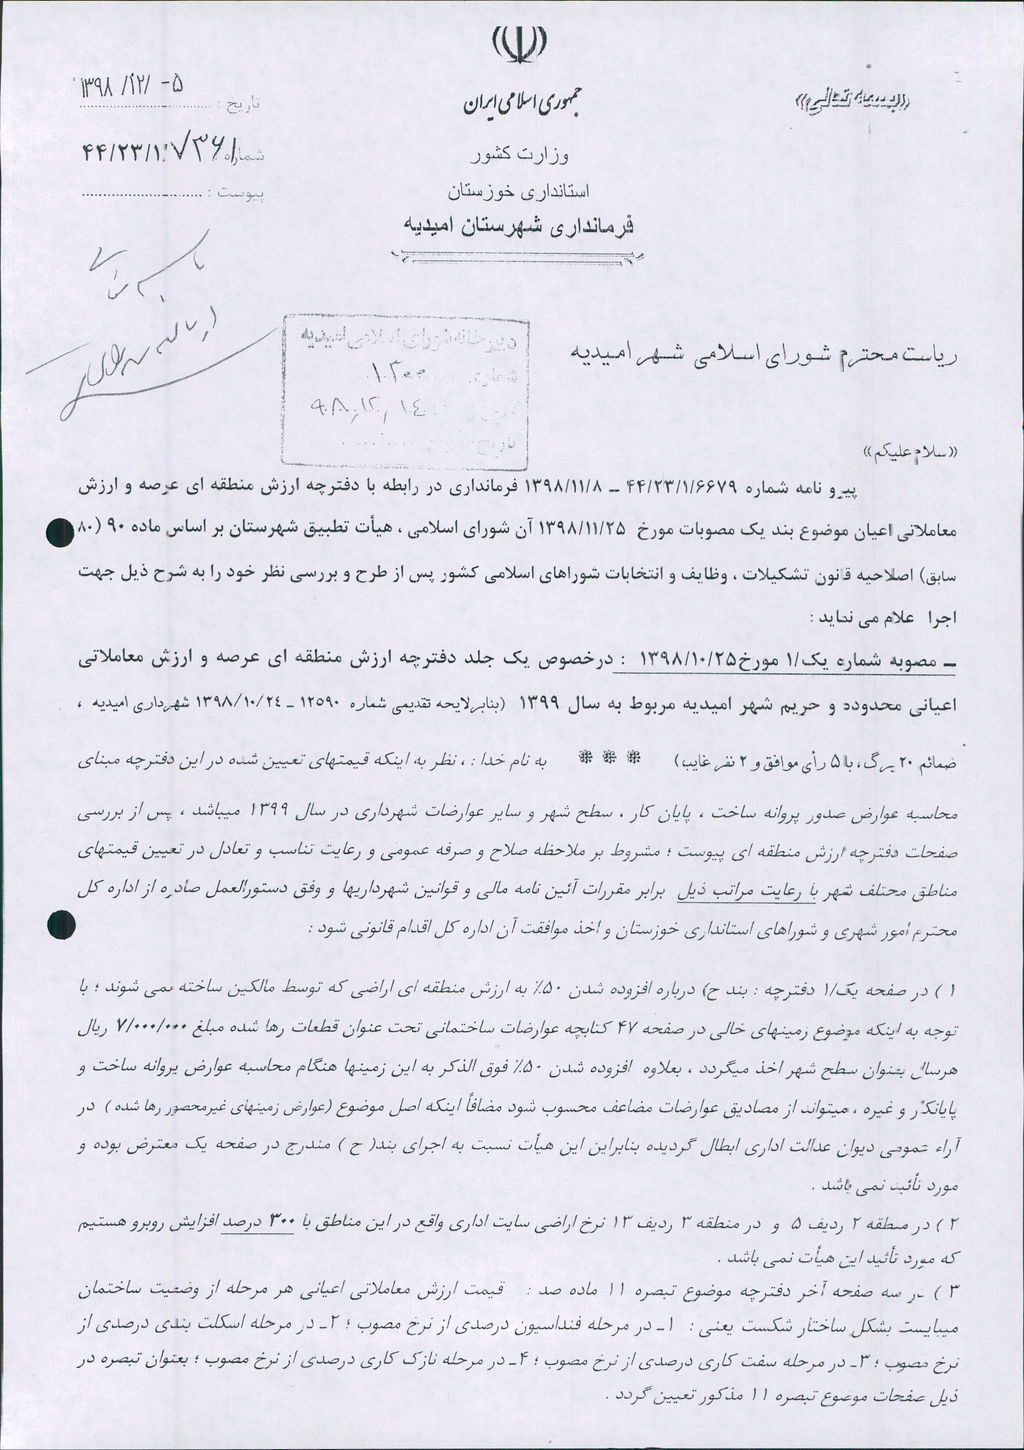 «بسمه تعالی»
جمهوری اسلامی ایران
وزارت کشور
استانداری خوزستان
فرمانداری شهرستان امیدیه
تاریخ : ۱۳۹۸/۱۲/۰۵
شماره ۴۴/۲۳/۱/۷۳۶۱
پیوست :
دبیرخانه شورای اسلامی امیدیه
شماره
۹۸,۱۲,۱٤
تاریخ
ریاست محترم شورای اسلامی شهر امیدیه
«سلام علیکم»
پیرو نامه شماره ۴۴/۲۳/۱/۶۶۷۹ ــ ۱۳۹۸/۱۱/۸ فرمانداری در رابطه با دفترچه ارزش منطقه ای عرصه و ارزش
معاملاتی اعیان موضوع بند یک مصوبات مورخ ۱۳۹۸/۱۱/۲۵ آن شورای اسلامی ، هیأت تطبیق شهرستان بر اساس ماده ۹۰ (۸۰
سابق) اصلاحیه قانون تشکیلات ، وظایف و انتخابات شوراهای اسلامی کشور پس از طرح و بررسی نظر خود را به شرح ذیل جهت
اجرا علام می نماید :
ــ مصوبه شماره یک/۱ مورخ۱۳۹۸/۱۰/۲۵ : درخصوص یک جلد دفترچه ارزش منطقه ای عرصه و ارزش معاملاتی
اعیانی محدوده و حریم شهر امیدیه مربوط به سال ۱۳۹۹ (بنابرلایحه تقدیمی شماره ۱۲۵۹۰ ــ ۱۳۹۸/۱۰/۲۴ شهرداری امیدیه ،
ضمائم ۲۰ برگ ، با ۵ رأی موافق و ۲ نفر غایب) ❋ ❋ ❋ به نام خدا : ، نظر به اینکه قیمتهای تعیین شده در این دفترچه مبنای
محاسبه عوارض صدور پروانه ساخت ، پایان کار ، سطح شهر و سایر عوارضات شهرداری در سال ۱۳۹۹ میباشد ، پس از بررسی
صفحات دفترچه ارزش منطقه ای پیوست ؛ مشروط بر ملاحظه صلاح و صرفه عمومی و رعایت تناسب و تعادل در تعیین قیمتهای
مناطق مختلف شهر با رعایت مراتب ذیل برابر مقررات آئین نامه مالی و قوانین شهرداریها و وفق دستورالعمل صادره از اداره کل
محترم امور شهری و شوراهای استانداری خوزستان و اخذ موافقت آن اداره کل اقدام قانونی شود :
۱ ) در صفحه یک/۱ دفترچه : بند ح) درباره افزوده شدن ۵۰٪ به ارزش منطقه ای اراضی که توسط مالکین ساخته نمی شوند ؛ با
توجه به اینکه موضوع زمینهای خالی در صفحه ۴۷ کتابچه عوارضات ساختمانی تحت عنوان قطعات رها شده مبلغ ۷/۰۰۰/۰۰۰ ریال
هرسال بعنوان سطح شهر اخذ میگردد ، بعلاوه افزوده شدن ۵۰٪ فوق الذکر به این زمینها هنگام محاسبه عوارض پروانه ساخت و
پایانکار و غیره ، میتواند از مصادیق عوارضات مضاعف محسوب شود مضافاً اینکه اصل موضوع (عوارض زمینهای غیرمحصور رها شده ) در
آراء عمومی دیوان عدالت اداری ابطال گردیده بنابراین این هیأت نسبت به اجرای بند( ح ) مندرج در صفحه یک معترض بوده و
مورد تأئید نمی باشد .
۲ ) در منطقه ۲ ردیف ۵ و در منطقه ۳ ردیف ۱۳ نرخ اراضی سایت اداری واقع در این مناطق با ۳۰۰ درصد افزایش روبرو هستیم
که مورد تأئید این هیأت نمی باشد .
۳ ) در سه صفحه آخر دفترچه موضوع تبصره ۱۱ ماده صد : قیمت ارزش معاملاتی اعیانی هر مرحله از وضعیت ساختمان
میبایست بشکل ساختار شکست یعنی : ۱ـ در مرحله فنداسیون درصدی از نرخ مصوب ؛ ۲ـ در مرحله اسکلت بندی درصدی از
نرخ مصوب ؛ ۳ـ در مرحله سفت کاری درصدی از نرخ مصوب ؛ ۴ـ در مرحله نازک کاری درصدی از نرخ مصوب ؛ بعنوان تبصره در
ذیل صفحات موضوع تبصره ۱۱ مذکور تعیین گردد .